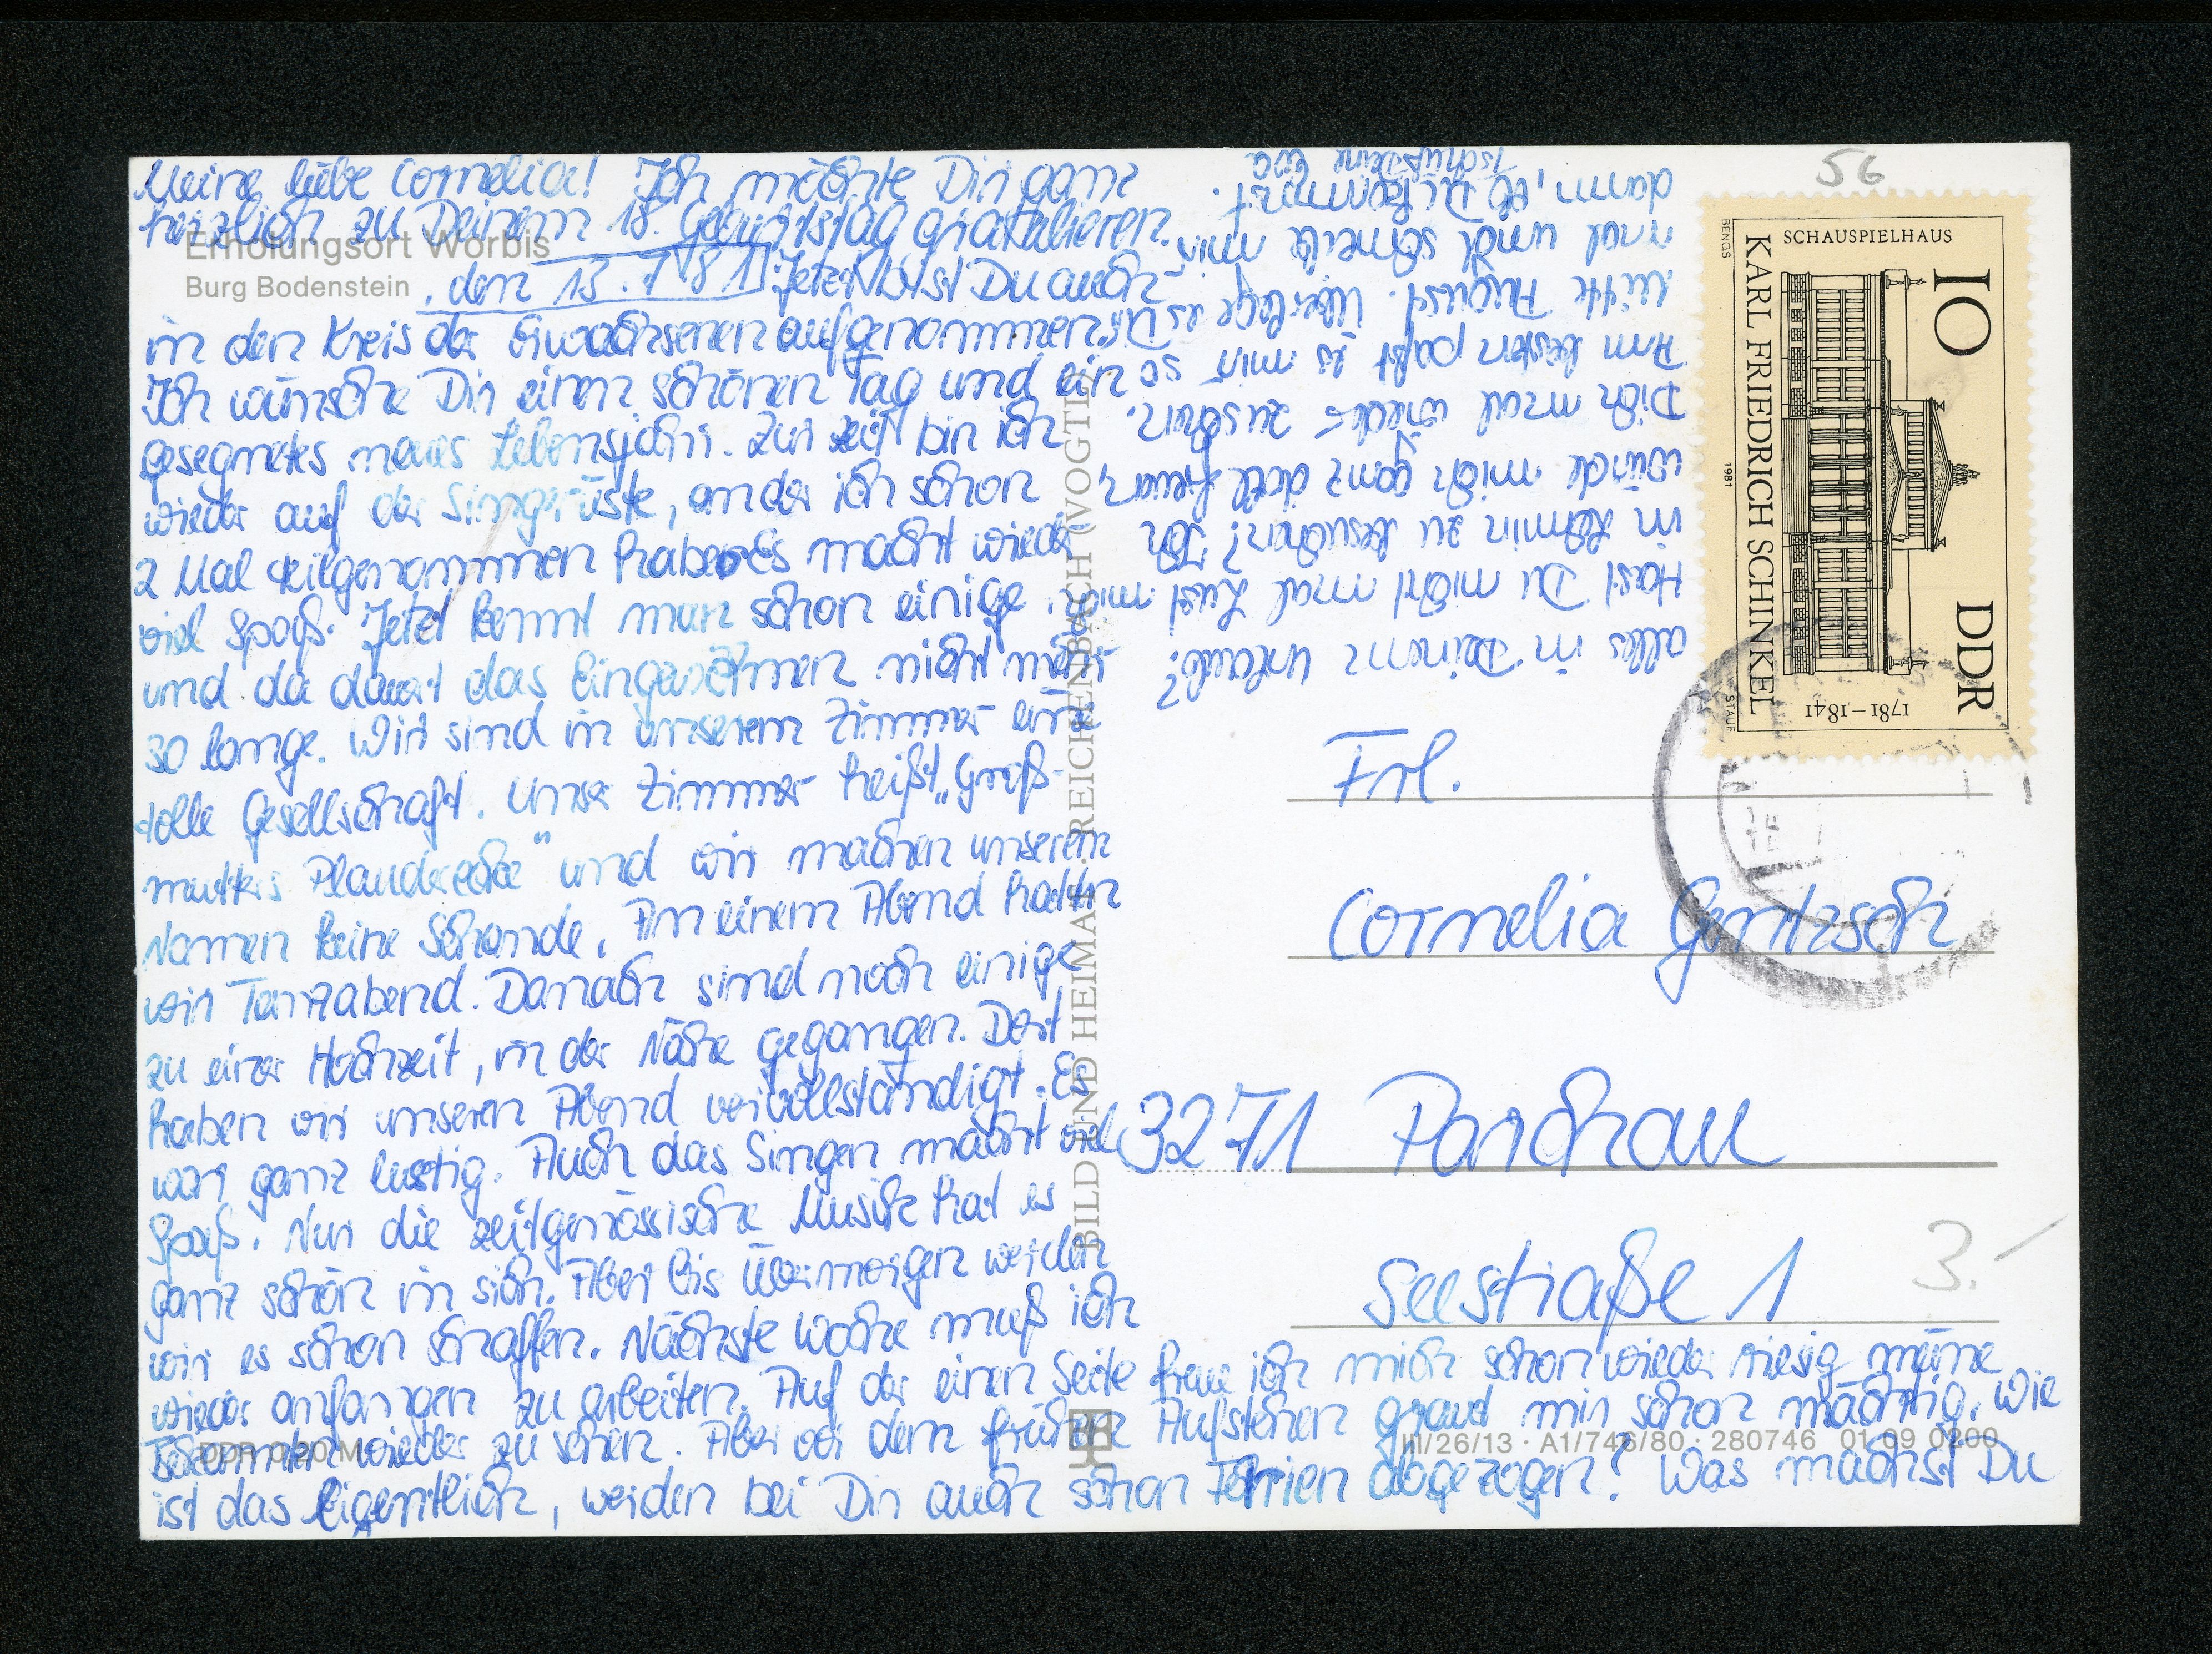 Meine liebe Cornelia! Ich möchte Dir ganz
herzlich zu Deinem 18. Geburtstag gratulieren.
Erholungsort Worbis
Burg Bodenstein, den 13.7.81 Jetzt bist Du auch
in den Kreis der Erwachsenen aufgenommen.
Ich wünsche Dir einen schönen Tag und ein
gesegnetes neues Lebensjahr. Zur Zeit bin ich
wieder auf der Singerüste, an der ich schon
2 Mal teilgenommen habe. Es macht wieder
viel Spaß. Jetzt kennt man schon einige
und da dauert das Eingewöhnen nicht mehr
so lange. Wir sind in unserem Zimmer eine
tolle Gesellschaft. Unser Zimmer heißt „Groß-
mutters Plauderecke" und wir machen unserem
Namen keine Schande. An einem Abend hatten
wir Tanzabend. Danach sind noch einige
zu einer Hochzeit, in der Nähe gegangen. Dort
haben wir unseren Abend vervollständigt. Es
war ganz lustig. Auch das Singen macht viel
Spaß. Nur die zeitgenössische Musik hat es
ganz schön in sich. Aber bis Übermorgen werden
wir es schon schaffen. Nächste Woche muß ich
wieder anfangen zu arbeiten. Auf der einen Seite freue ich mich schon wieder riesig meine
Bekannten wieder zu sehen. Aber vor dem frühen Aufstehen graut mir schon mächtig. Wie
ist das eigentlich, werden bei Dir auch schon Ferien abgezogen? Was machst Du
alles in Deinem Urlaub?
Hast Du nicht mal Lust mich
in zu besuchen? Ich
würde mich ganz doll freuen,
Dich mal wieder zu sehen.
Am besten paßt es mir so
Mitte August. Überlege es Dir
mal und schreib mir
dann, ob Du kommst.
Tschüß Deine Eva
56
10 DDR
SCHAUSPIELHAUS
KARL FRIEDRICH SCHINKEL
1781–1841
BENGS 1981 STAUF
Frl.
Cornelia Gentzsch
3271 Parchau
Seestraße 1
3.-
BILD UND HEIMAT · REICHENBACH (VOGTL)
DDR 0,20 M
III/26/13 · A1/746/80 · 280746 01 09 0200